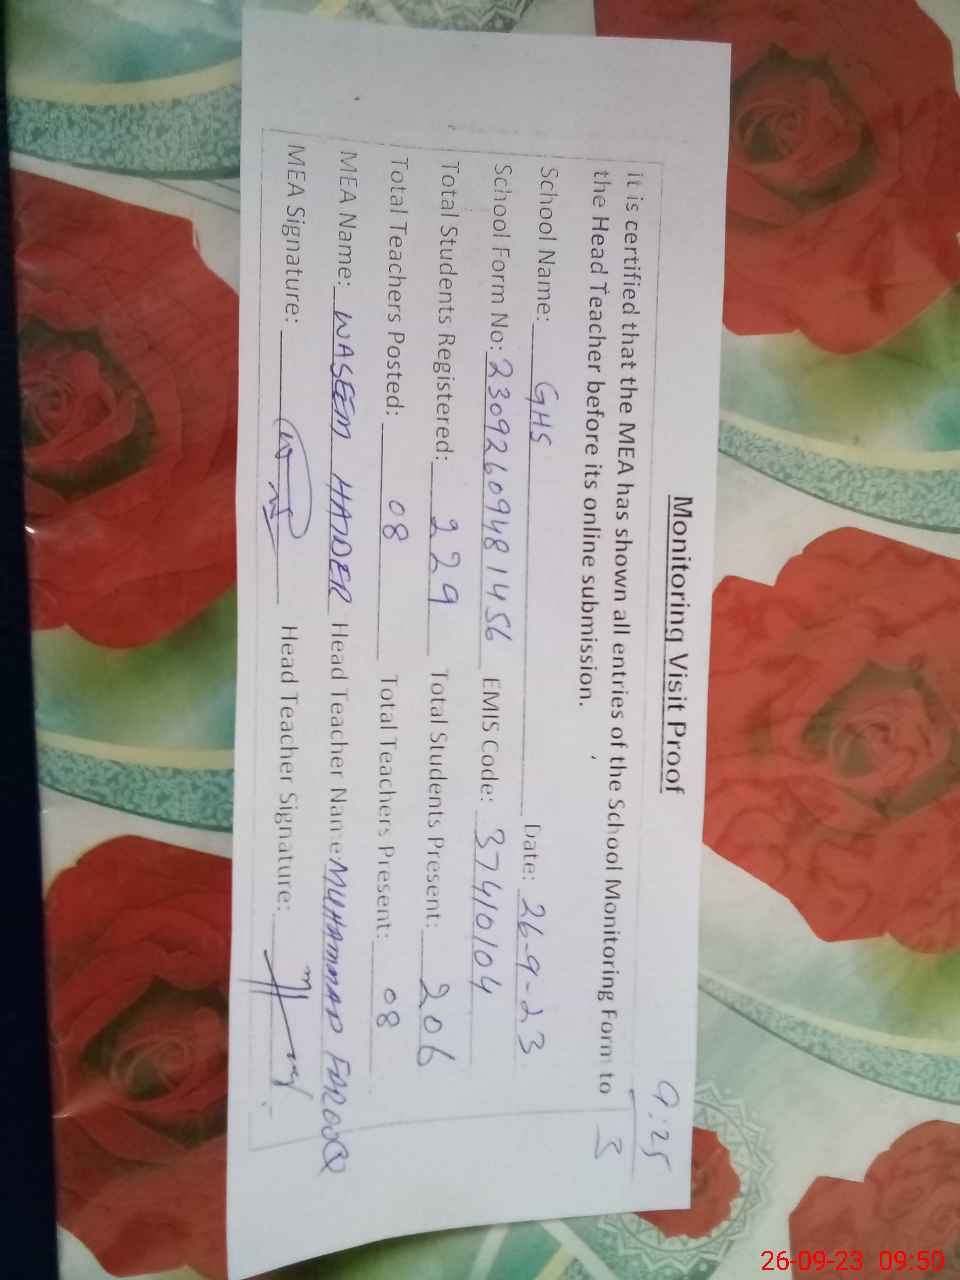 9:25
3
Monitoring Visit Proof
it is certified that the MEA has shown all entries of the School Monitoring Form to
the Head Teacher before its online submission.
School Name: GHS Date: 26-9-23
School Form No: 23092609481456 EMIS Code: 37410104
Total Students Registered: 229 Total Students Present: 206
Total Teachers Posted: 08 Total Teachers Present: 08
MEA Name: WASEEM HAIDER Head Teacher Name MUHAMMAD FAROOQ
MEA Signature: Head Teacher Signature:
26-09-23 09:50